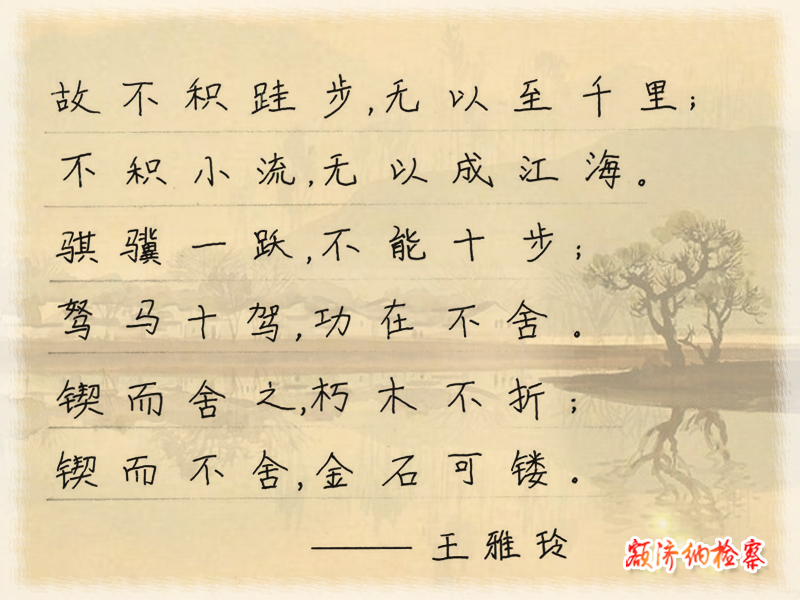 故不积跬步,无以至千里;
不积小流,无以成江海。
骐骥一跃,不能十步;
驽马十驾,功在不舍。
锲而舍之,朽木不折;
锲而不舍,金石可镂。
——王雅玲
额济纳检察